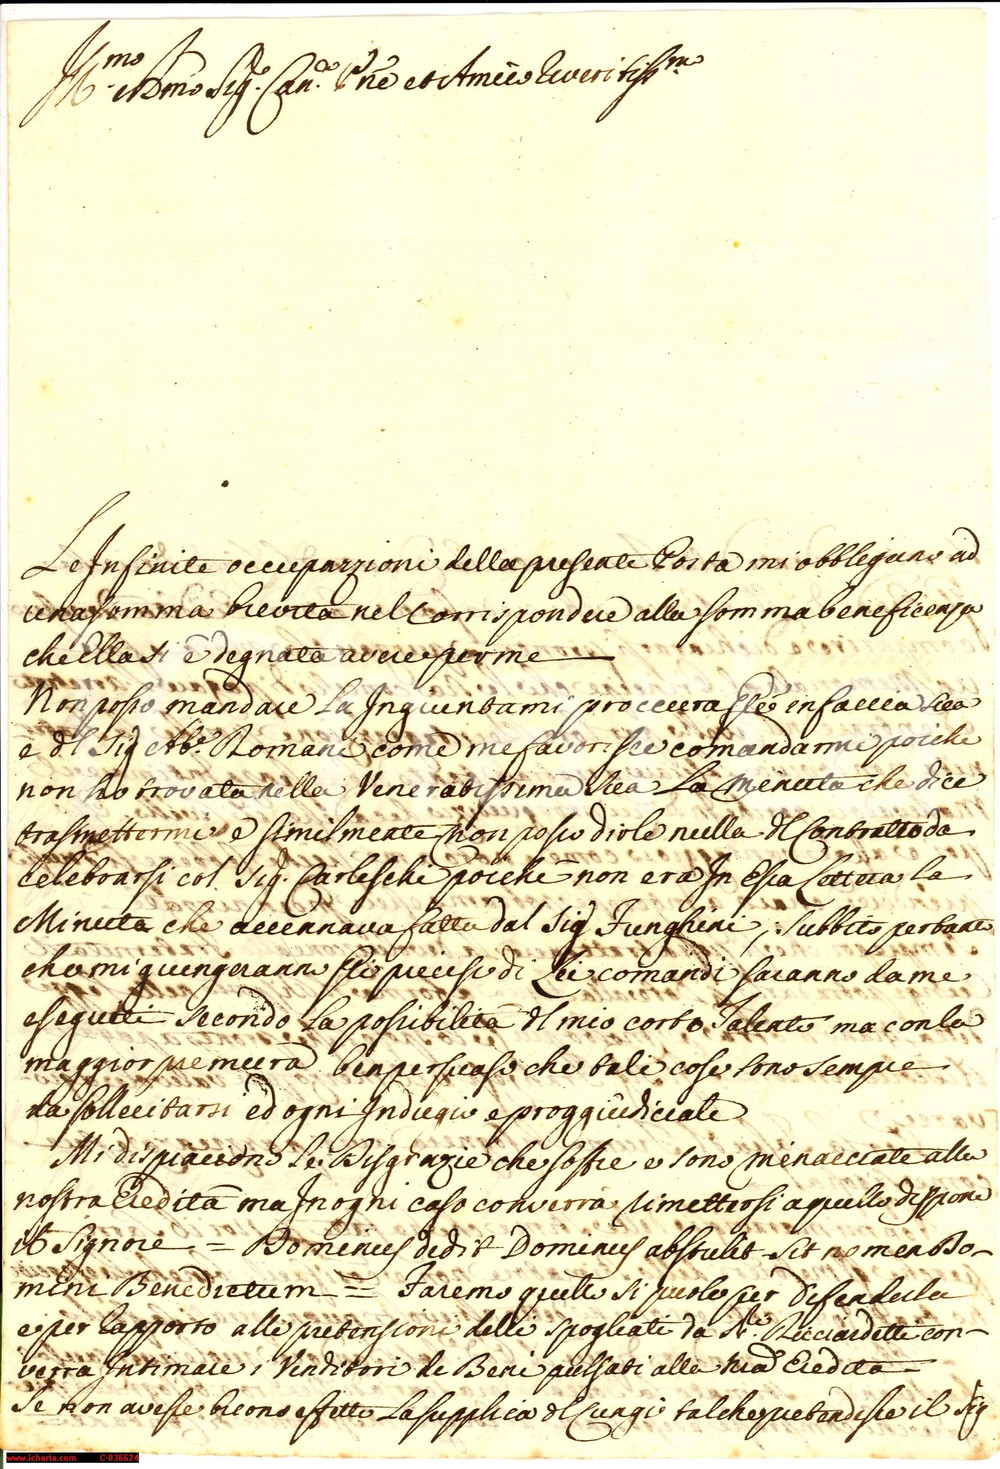 Ill.mo
e Rmo Sig. Can.co Pne et Amico Riveritiss.mo
Le Infinite occupazzioni della presente Posta mi obbligano ad
una somma brevità nel Corrispondere alla somma beneficenza
che Ella si è degnata avere per me
Non posso mandare La procura in faccia sua
e dl Sig Ab.e Romani come me favorisce comandarmi poiche
non ho trovata nella Veneratissima sua La Minuta che dice
trasmettermi e similmente non posso dirle nulla dl Contratto da
celebrarsi col Sig. Carleschi poiche non era In Essa La
Minuta che accennava fatta dal Sig Funghini; subbito pertanto
che mi giungeranno Gli precisi di Lei comandi saranno da me
eseguiti secondo La possibilità dl mio corto Talento ma con la
maggior premura ben persuaso che tali cose sono sempre
da sollecitarsi ed ogni Indugio e proggiudiciale
Mi dispiacciono Le Disgrazie che soffre e sono minacciate alla
nostra Eredità ma In ogni caso converrà rimettersi a quello dispone
il Signore = Dominus dedit Dominus abstulit sit nomen Do-
mini Benedictum = Faremo quello si puole per difenderla
e per rapporto alle pretensioni delli spogliati da Ricciardetti con-
verrà Intimare i Venditori de Beni passati alla Nra Eredità
Se non avesse buono effetto La supplica dl Cungi talche pretendesse il Sig
www.icharta.com C-036624